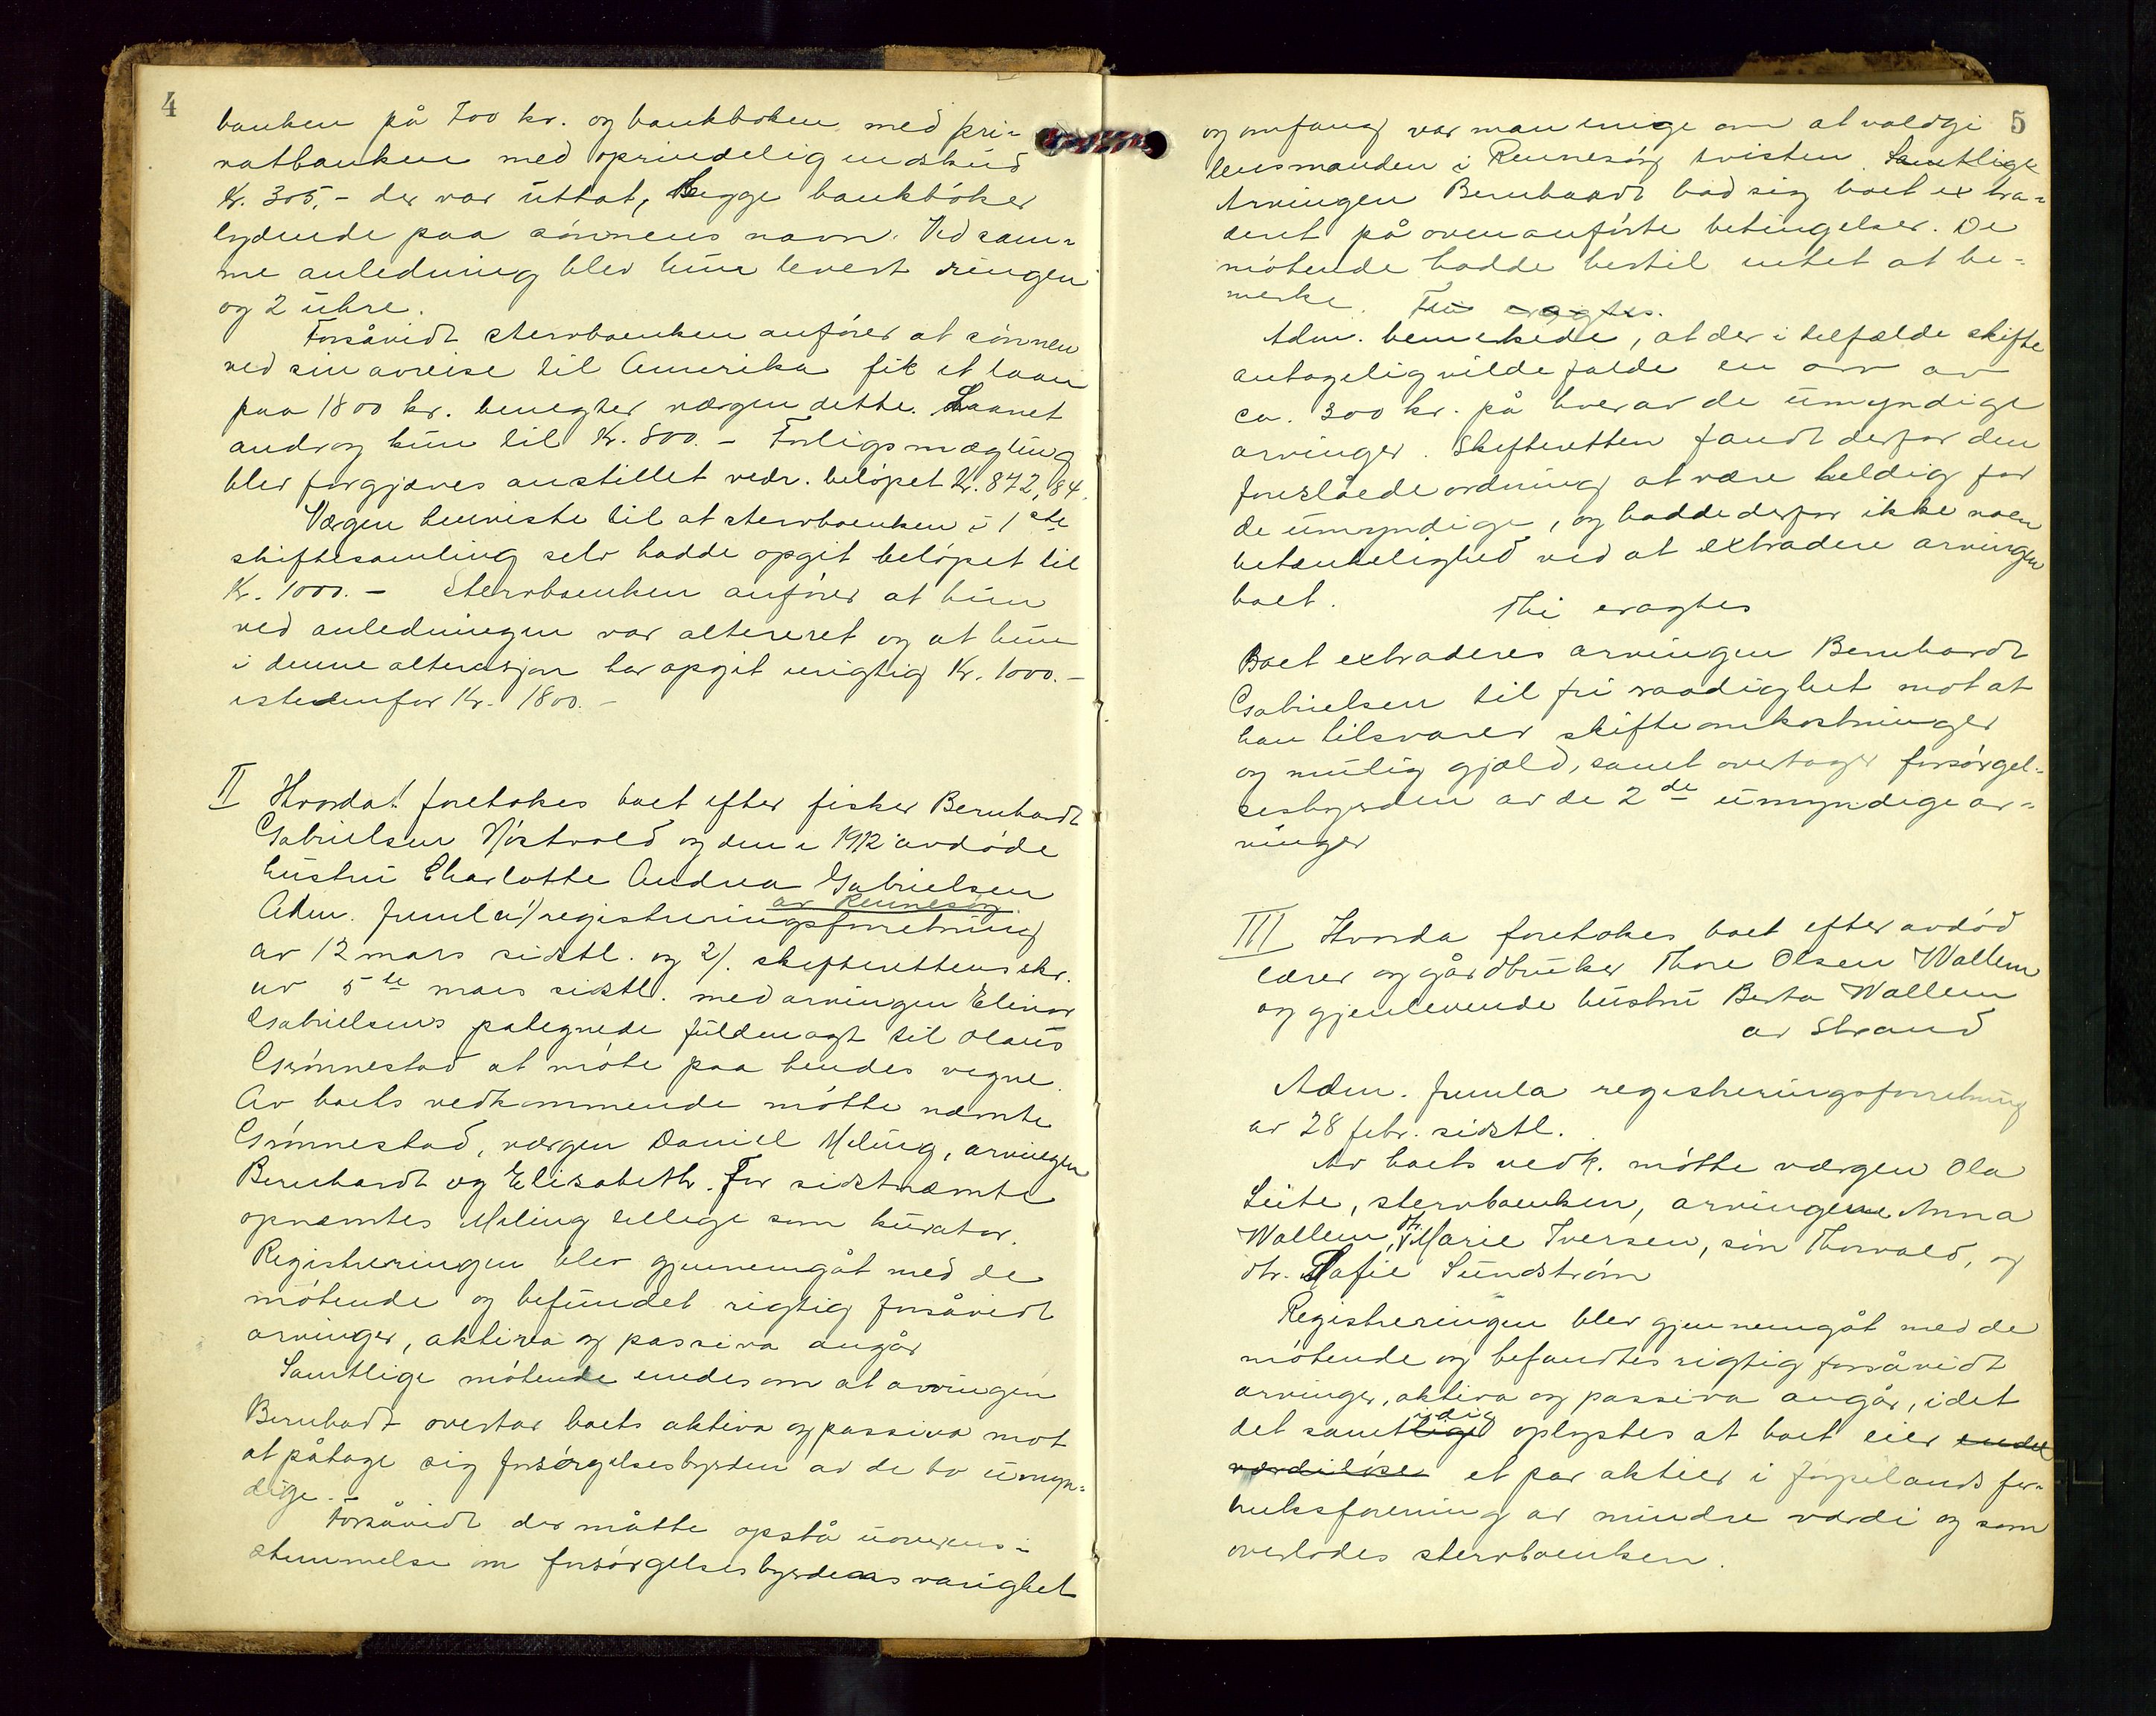 4
banken på 700 kr. og bankboken med pri-
vatbanken med oprindelig indskud
Kr. 305.- der var uttat, Begge bankbøker
lydende paa sønnens navn. Ved sam-
me anledning blev hun levert ringen
og 2 uhre.
Forsåvidt stervboenken anfører at sønnen
ved sin avreise til Amerika fik et laan
paa 1800 kr. benegter værgen dette. Laanet
androg kun til Kr. 800.- Forligsmægling
blev forgjæves anstillet vedr. beløpet Kr. 872,84.
Værgen henviste til at stervboenken i 1ste
skiftesamling selv hadde opgit beløpet til
Kr. 1000.- Stervboenken anfører at hun
ved anledningen var altereret og at hun
i denne alterasjon har opgit urigtig Kr. 1000.-
istedenfor Kr. 1800.-
II Hvordat foretokes boet efter fisker Bernhardt
Gabrielsen Nøstvold og den i 1912 avdøde
hustru Charlotte Andrea Gabrielsen
av Rennesøy.
Adm. fremla 1) registreringsforretning
av 12 mars sidstl. og 2). skifterettens skr.
av 5te mars sidstl. med arvingen Elinor
Gabrielsens pategnede fuldmagt til Olaus
Grønnestad at møte paa hendes vegne.
Av boets vedkommende møtte næmte
Grønnestad, værgen Daniel Meling, arvingen
Bernhardt og Elisabeth. For sidstnæmte
opnæmtes Meling tillige som kurator.
Registreringen blev gjennemgåt med de
møtende og befundet rigtig forsåvidt
arvinger, aktiva og passiva angår
Samtlige møtende enedes om at arvingen
Bernhadt overtar boets aktiva og passiva mot
at påtage sig forsørgelsesbyrden av de to umyn-
dige.-
Forsåvidt der måtte opstå uoverens-
stemmelse om forsørgelsesbyrdens varighet
5
og omfang var man enige om at voldgi
lensmanden i Rennesøy tvisten. Samtlige
Arvingen Bernhardt bad sig boet extra-
deret på ovenanførte betingelser. De
møtende hadde hertil intet at be-
merke. Thi eragtes.
Adm. bemerkede, at der i tilfælde skifte
antagelig vilde falde en arv av
ca. 300 kr. på hver av de umyndige
arvinger. Skifteretten fandt derfor den
foreslåede ordning at være heldig for
de umyndige, og hadde derfor ikke noen
betænkelighed ved at extradere arvingen
boet.
Thi eragtes
Boet extraderes arvingen Bernhardt
Gabrielsen til fri raadighet mot at
han tilsvarer skifteomkostninger
og mulig gjæld, samt overtager forsørgel-
sesbyrden av de 2de umyndige ar-
vinger
III Hvorda foretokes boet efter avdød
lærer og gårdbruker Thore Olsen Wallem
og gjenlevende hustru Berta Wallem
av Strand
Adm. fremla registreringsforretning
av 28 febr. sidstl.
Av boets vedk. møtte værgen Ola
Leite, stervboenken, arvingene Anna
Wallem, dtr. Marie Iversen, søn Thorvald, og
dtr. Safie Sundstrøm
Registreringen blev gjennemgåt med de
møtende og befandtes rigtig forsåvidt
arvinger, aktiva og passiva angår, idet
det samtlige oplystes at boet eier endel
værdiløse et par aktier i Jørpelands for-
bruksforening av mindre værdi og som
overlodes stervboenken.